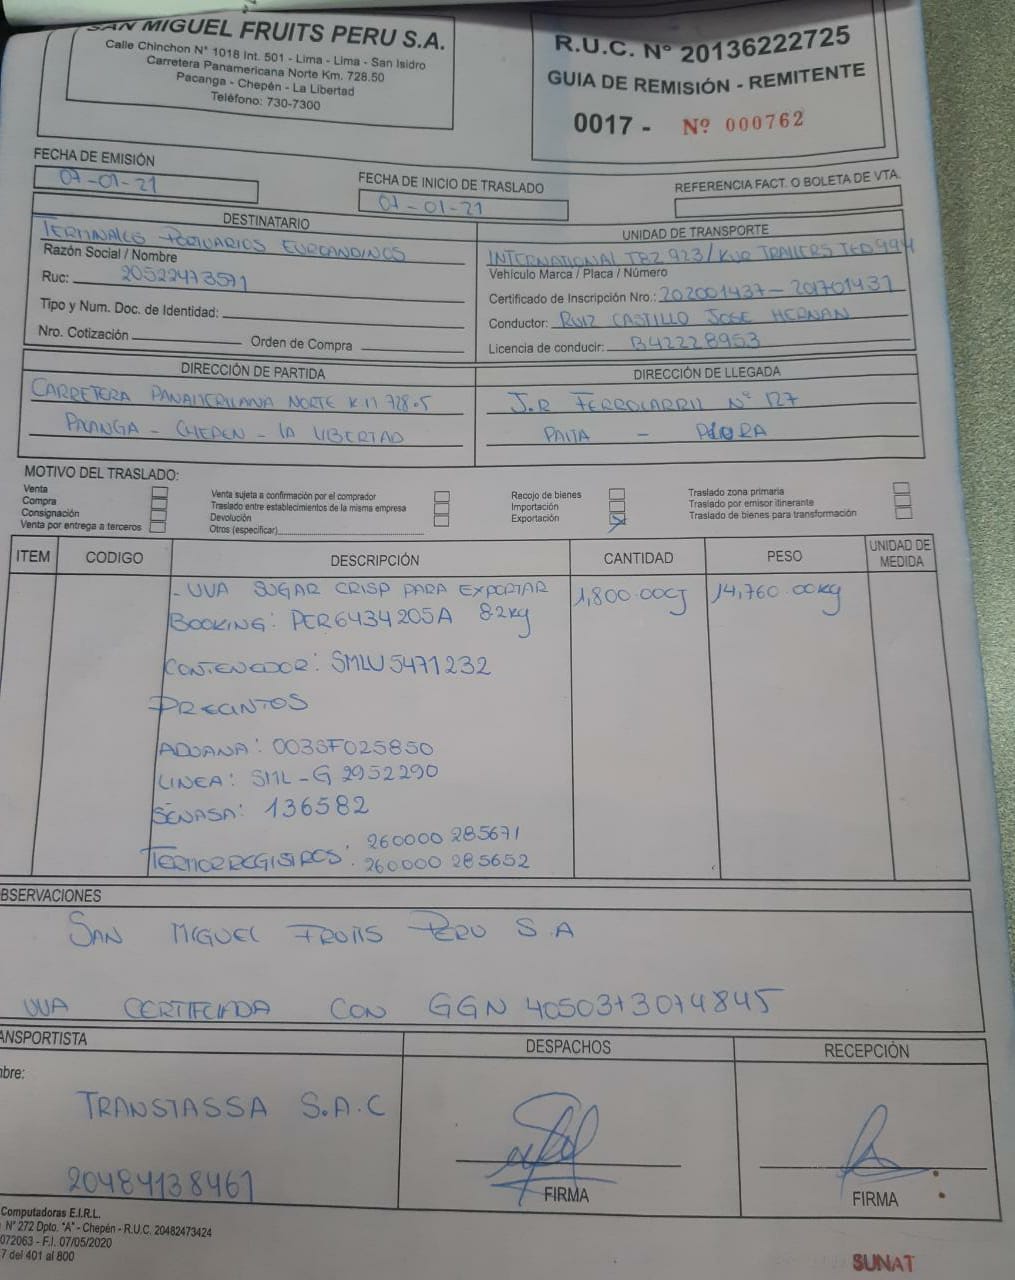 SAN MIGUEL FRUITS PERU S.A.
Calle Chinchon N° 1018 Int. 501 - Lima - Lima - San Isidro
Carretera Panamericana Norte Km. 728.50
Pacanga - Chepén - La Libertad
Teléfono: 730-7300
R.U.C. N° 20136222725
GUIA DE REMISIÓN - REMITENTE
0017 - Nº 000762
FECHA DE EMISIÓN
07-01-21
FECHA DE INICIO DE TRASLADO
07-01-21
REFERENCIA FACT. O BOLETA DE VTA.
DESTINATARIO
TERMINALES PORTUARIOS EUROANDINOS
Razón Social / Nombre
Ruc: 20522473571
Tipo y Num. Doc. de Identidad:
Nro. Cotización Orden de Compra
UNIDAD DE TRANSPORTE
INTERNATIONAL T8Z 923/ TRAILERS
Vehículo Marca / Placa / Número
Certificado de Inscripción Nro.: 202001437 - 201701437
Conductor: RUIZ CASTILLO JOSE HERNAN
Licencia de conducir: B42228953
DIRECCIÓN DE PARTIDA
CARRETERA PANAMERICANA NORTE KM 728.5
PACANGA - CHEPEN - LA LIBERTAD
DIRECCIÓN DE LLEGADA
J.R FERROCARRIL N° 127
PAITA - PIURA
MOTIVO DEL TRASLADO:
Venta
Compra
Consignación
Venta por entrega a terceros
Venta sujeta a confirmación por el comprador
Traslado entre establecimientos de la misma empresa
Devolución
Otros (especificar)
Recojo de bienes
Importación
Exportación X
Traslado zona primaria
Traslado por emisor itinerante
Traslado de bienes para transformación
ITEM CODIGO DESCRIPCIÓN CANTIDAD PESO UNIDAD DE MEDIDA
- UVA SUGAR CRISP PARA EXPORTAR 1,800.00CJ 14,760.00Kg
BOOKING: PER6434205A 8.2kg
CONTENEDOR: SMLU5471232
PRECINTOS
ADUANA: 0036F025850
LINEA: SML-G2952290
SENASA: 136582
TERMORREGISTROS: 260000 285671
260000 285652
OBSERVACIONES
SAN MIGUEL FRUITS PERU S.A
UVA CERTIFICADA CON GGN 4050373074845
TRANSPORTISTA
mbre:
TRANSTASSA S.A.C
20484138461
DESPACHOS
FIRMA
RECEPCIÓN
FIRMA
Computadoras E.I.R.L.
N° 272 Dpto. "A" - Chepén - R.U.C. 20482473424
072063 - F.I. 07/05/2020
7 del 401 al 800
SUNAT